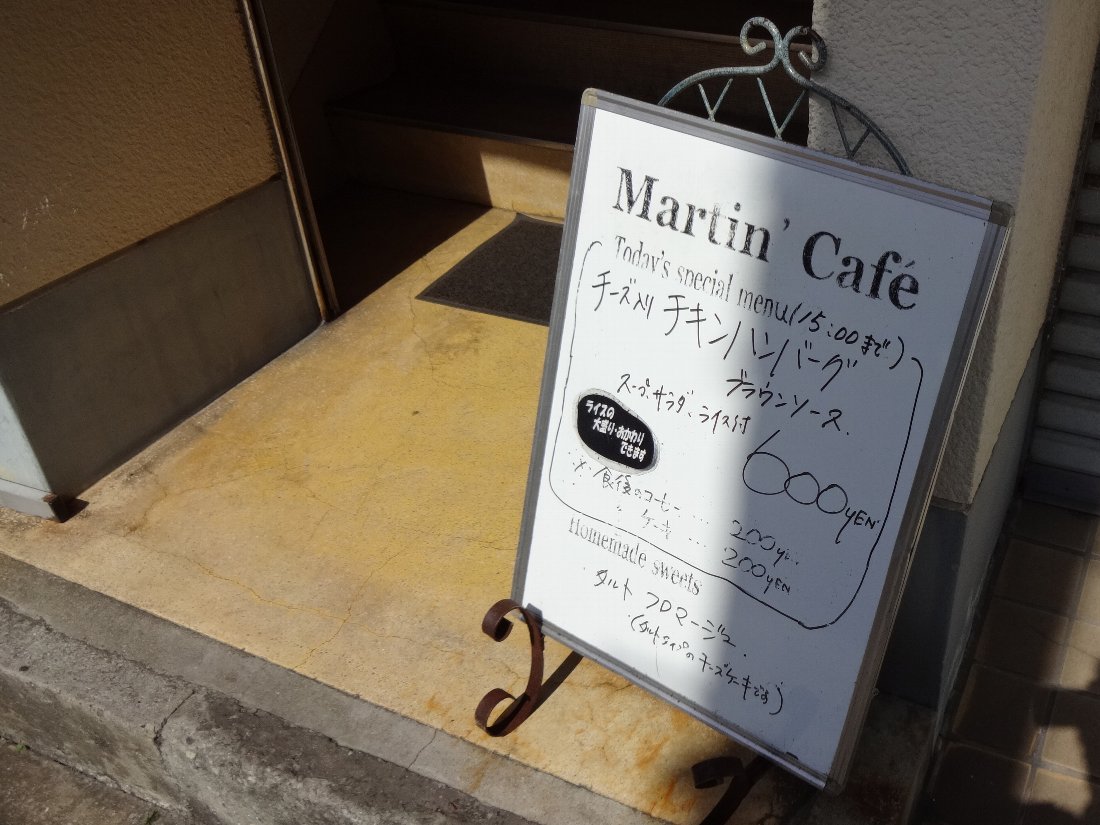 Martin' Café
Today's special menu (15:00まで)
チーズ入り チキンハンバーグ
ブラウンソース.
スープ、サラダ、ライス付
ライスの
大盛り・おかわり
できます
600YEN
※・食後のコーヒー ... 200yen
〃 ケーキ ... 200YEN
Homemade sweets
タルト フロマージュ.
(タルトタイプのチーズケーキです)